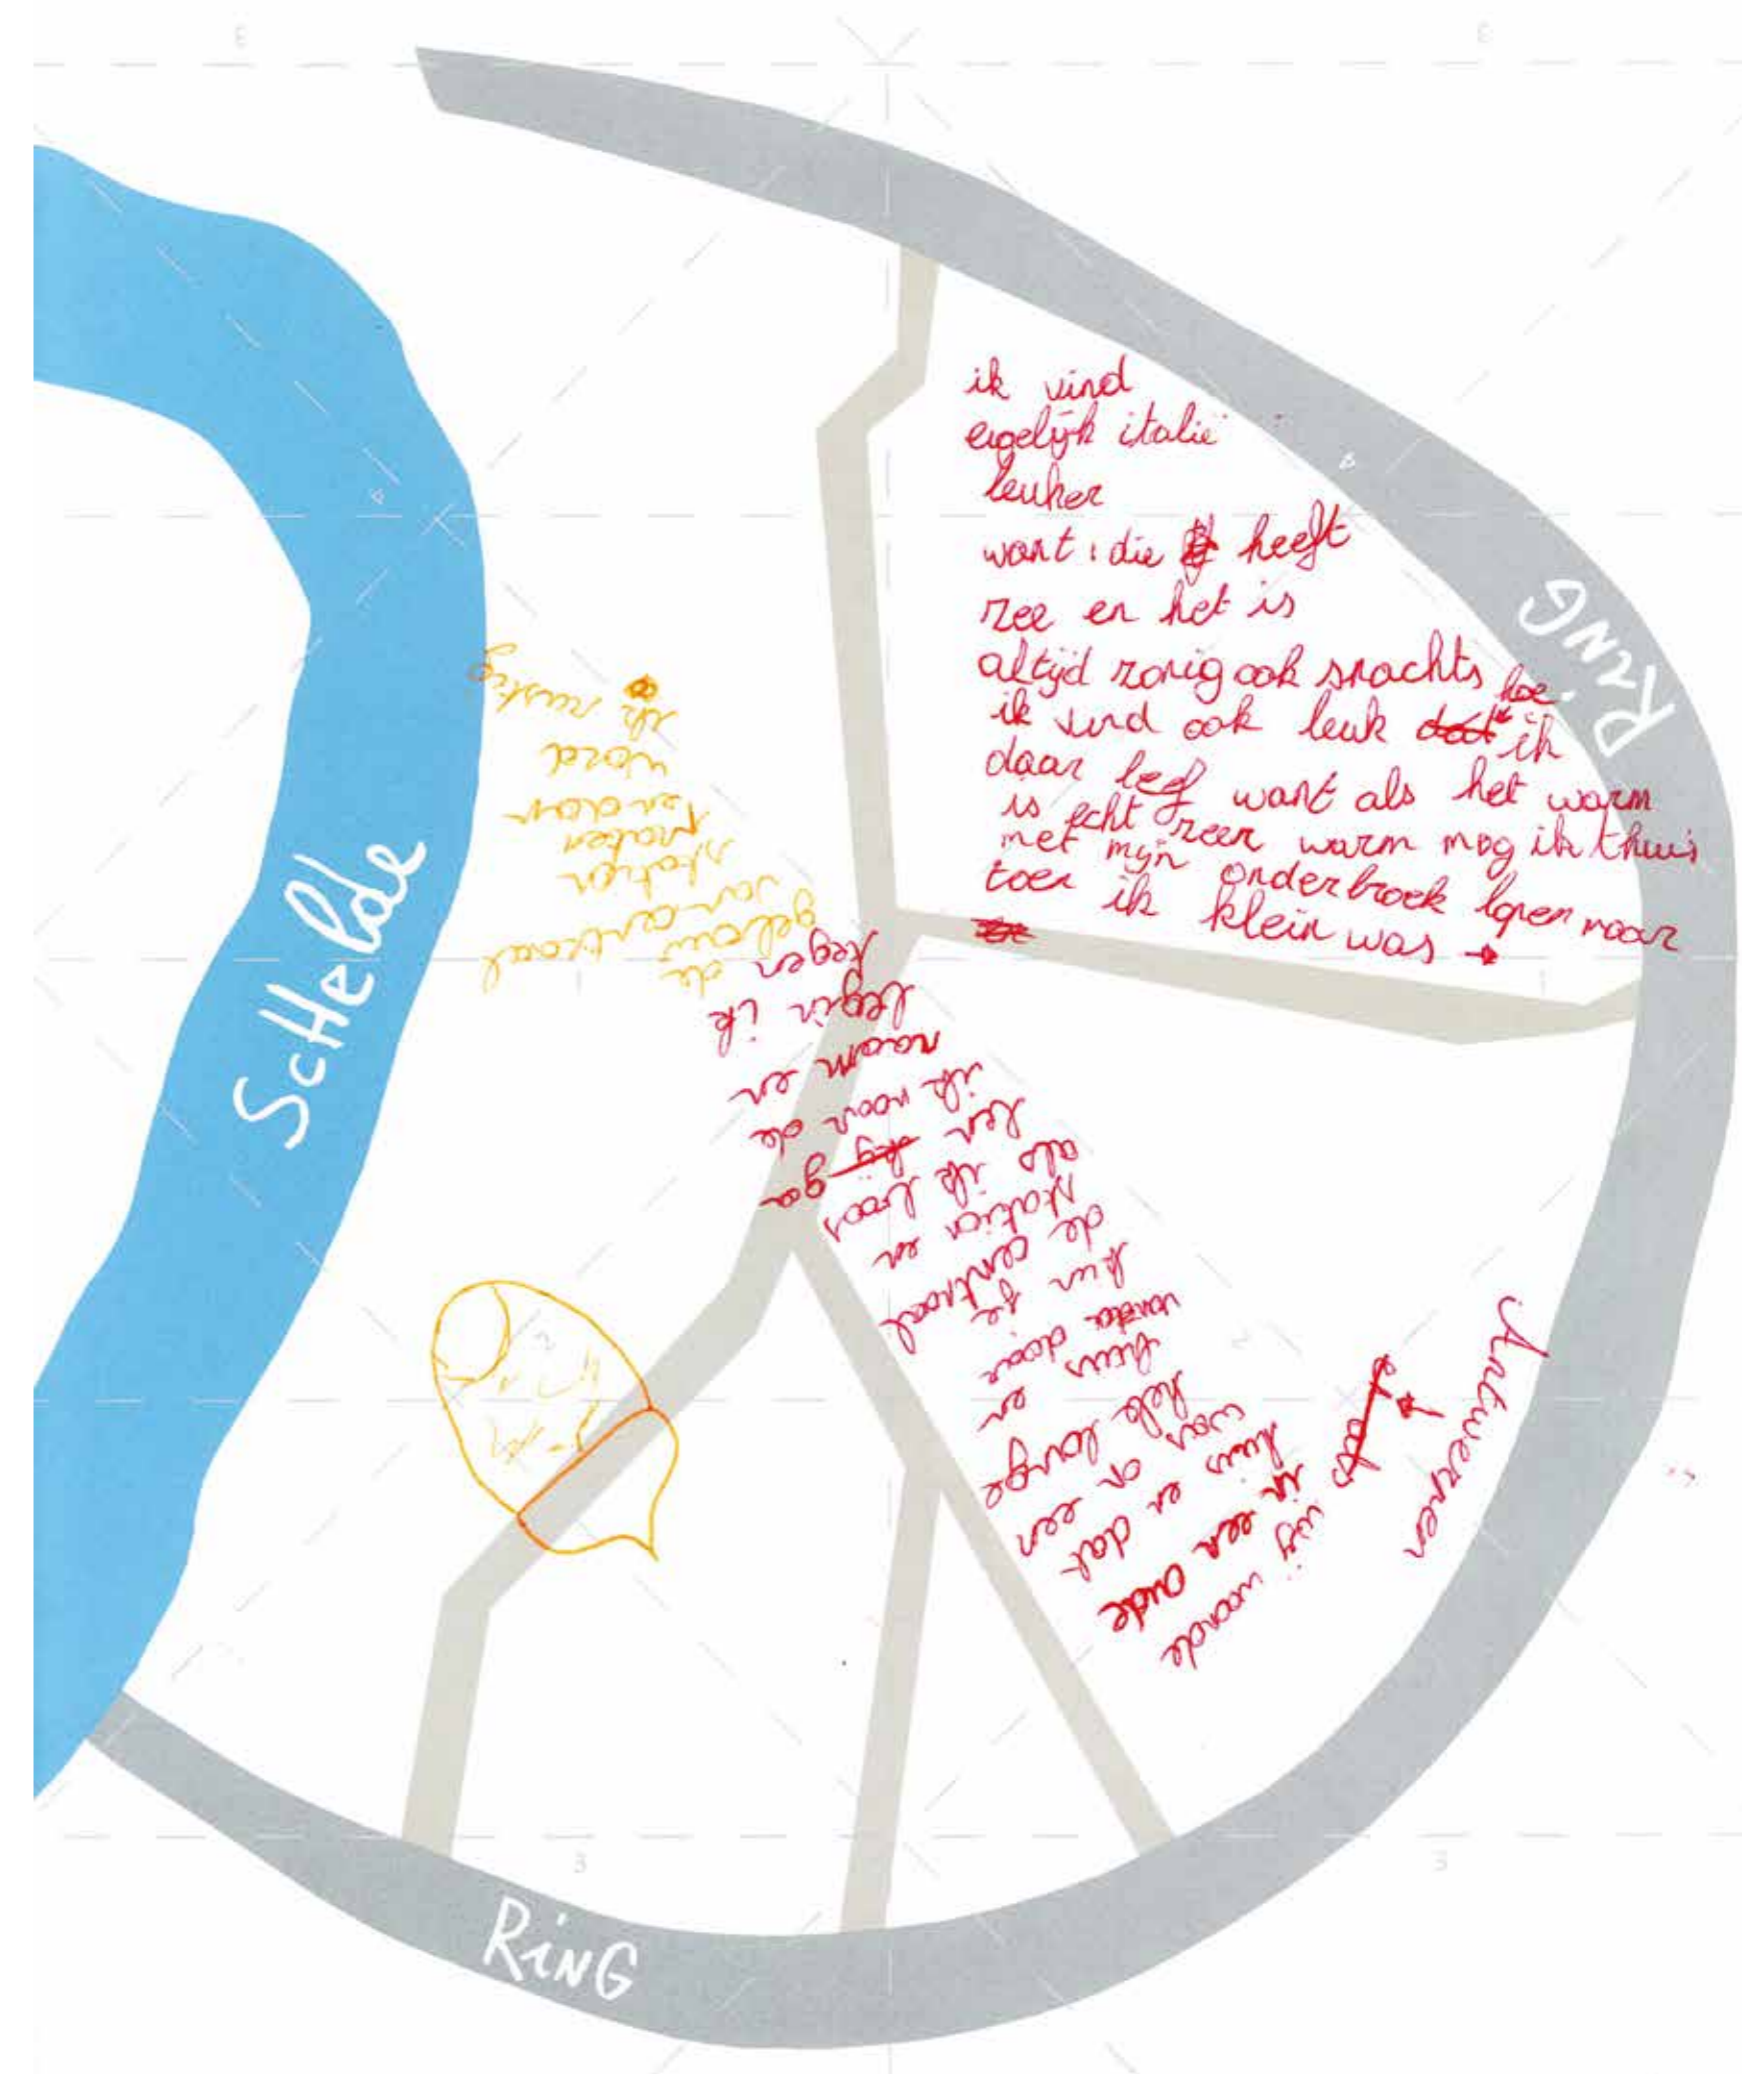 ik vind
eigelijk italië
leuker
want: die heeft
zee en het is
altijd zonig ook snachts
ik vind ook leuk hoe ik
daar leef want als het warm
is echt zeer warm mag ik thuis
met mijn onderbroek lopen maar
toen ik klein was →
Antwerpen
wij woonde
in een oude
huis en dat
was op een
hele lange
huis en
door
kun je
de centraal
station en
als ik boos
ben ga
ik naar de
raam en
begin ik
tegen
de
gebouw
van centraal
station
praten
en dan
word
ik rustig
SCHelde
RiNG
RiNG